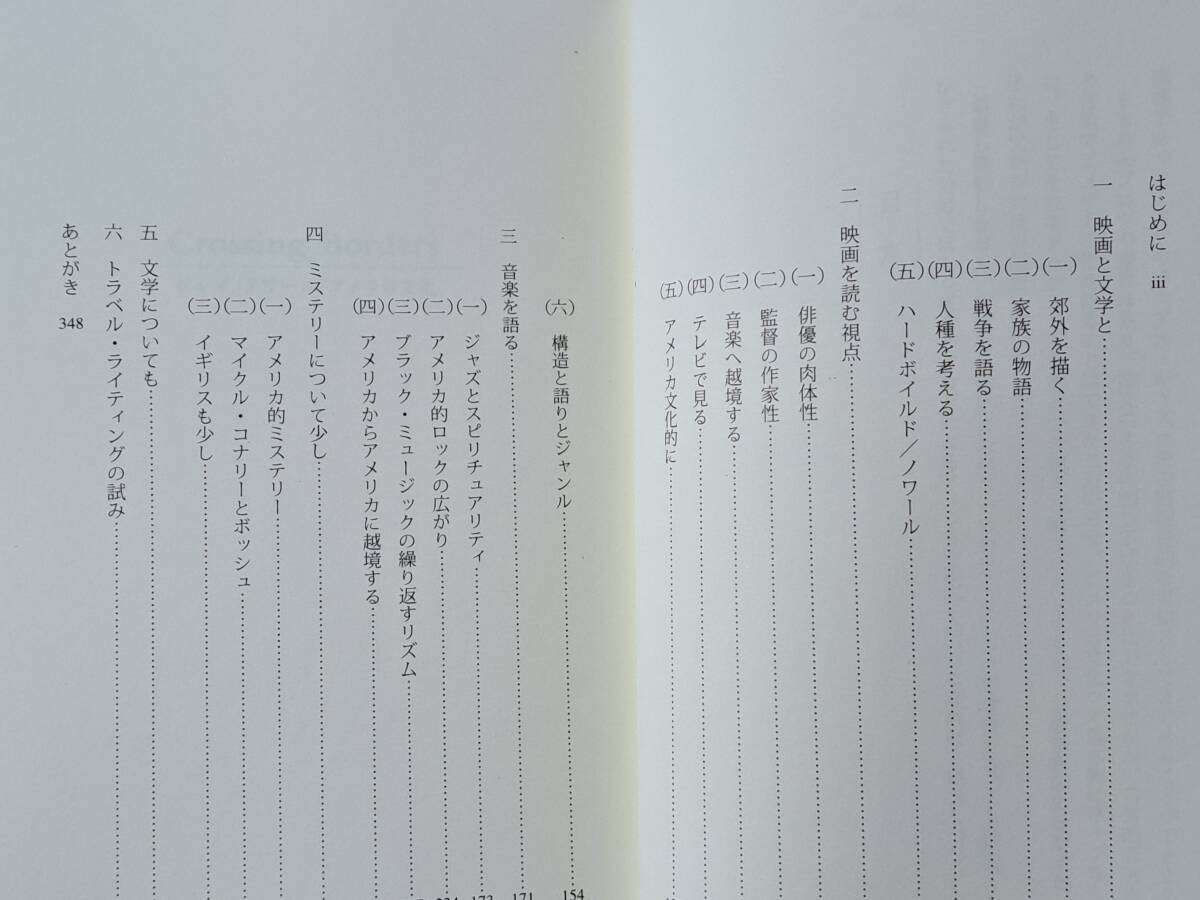 はじめに iii
一 映画と文学と
(一) 郊外を描く
(二) 家族の物語
(三) 戦争を語る
(四) 人種を考える
(五) ハードボイルド/ノワール
二 映画を読む視点
(一) 俳優の肉体性
(二) 監督の作家性
(三) 音楽へ越境する
(四) テレビで見る
(五) アメリカ文化的に
(六) 構造と語りとジャンル 154
三 音楽を語る 171
(一) ジャズとスピリチュアリティ
(二) アメリカ的ロックの広がり
(三) ブラック・ミュージックの繰り返すリズム
(四) アメリカからアメリカに越境する
四 ミステリーについて少し
(一) アメリカ的ミステリー
(二) マイクル・コナリーとボッシュ
(三) イギリスも少し
五 文学についても
六 トラベル・ライティングの試み
あとがき 348
Crossing Borders